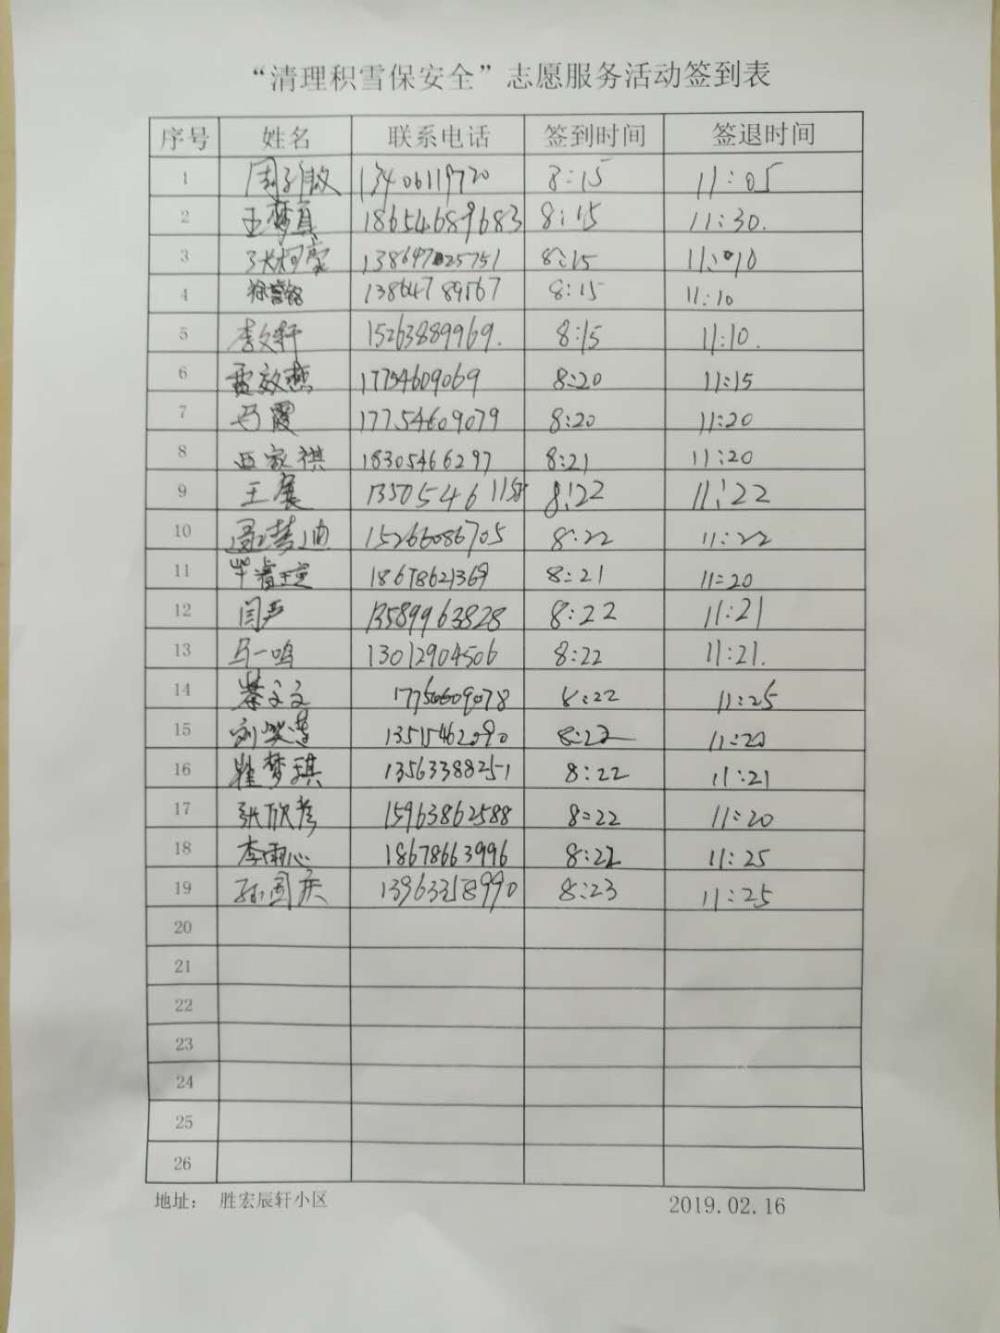 “清理积雪保安全”志愿服务活动签到表
序号 姓名 联系电话 签到时间 签退时间
1 13406119720 8:15 11:05
2 王梦真 18654689683 8:15 11:30.
3 张柯莹 8:15 11:
4 13864789567 8:15 11:10
5 李文轩 15263889969. 8:15 11:10.
6 雷效燕 17754609069 8:20 11:15
7 马霞 17754609079 8:20 11:20
8 18305466297 8:21 11:20
9 王展 8:22 11:22
10 15266086705 8:22 11:22
11 18678621369 8:21 11:20
12 闫严 13589963828 8:22 11:21
13 马一鸣 13012904506 8:22 11:21.
14 蔡文文 8:22 11:25
15 13515462090 8:22 11:20
16 翟梦琪 13563388251 8:22 11:21
17 张欣彦 15963862588 8:22 11:20
18 李雨心 18678663996 8:22 11:25
19 孙国庆 13963358990 8:23 11:25
20
21
22
23
24
25
26
地址： 胜宏辰轩小区 2019.02.16